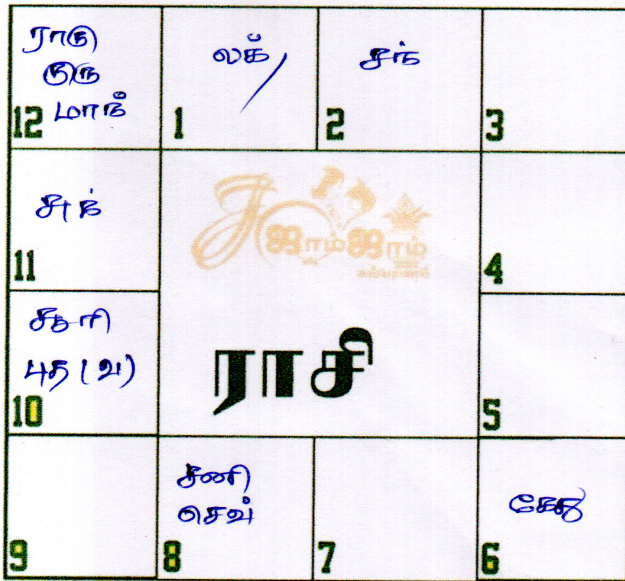 ராகு
குரு
மாந்
12
லக்/
1
சந்
2
3
சுக்
11
ஜாம்ஜாம்
4
சூரி
புத (வ)
10
ராசி
5
9
சனி
செவ்
8
7
கேது
6